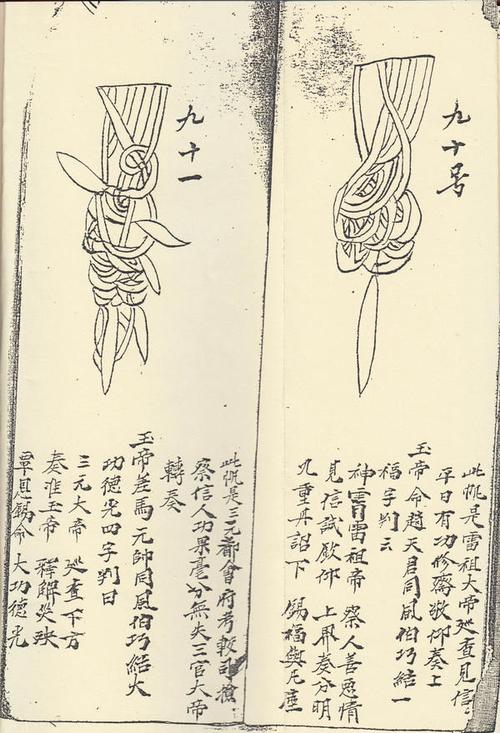 九十号
此㡬是雷祖大帝廵查見信
平日有功修齋敬仰奏上
玉帝命趙天君同風伯巧結一
福字判云
神霄雷祖帝 察人善惡情
見信誠欽仰 上界奏分明
九重丹詔下 錫福與凡塵
九十一
此㡬是三元都會府考較
察信人功果毫分無失三官大帝
轉奏
玉帝差馬元帥同風伯巧結大
功德光四字判曰
三元大帝 廵查下方
奏准玉帝 釋解災殃
覃恩錫命 大功德光